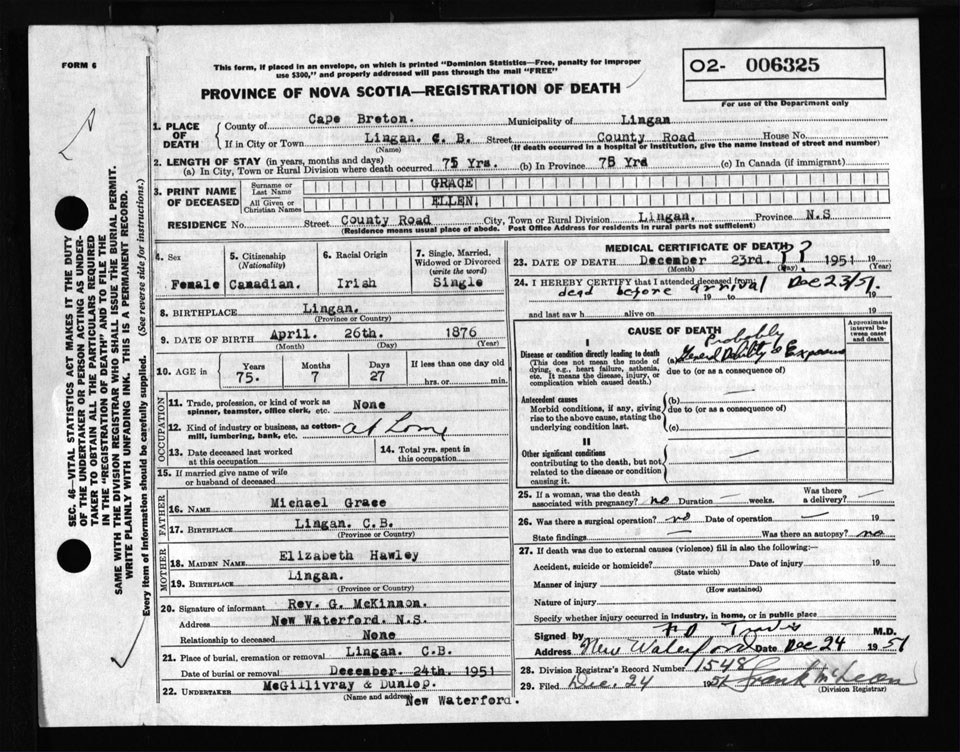 FORM 6
This form, if placed in an envelope, on which is printed "Dominion Statistics—Free, penalty for improper
use $300," and properly addressed will pass through the mail "FREE"
O2- 006325
For use of the Department only
PROVINCE OF NOVA SCOTIA—REGISTRATION OF DEATH
1. PLACE OF DEATH
County of Cape Breton. Municipality of Lingan
If in City or Town Lingan. C. B. Street County Road House No.
(Name) (If death occurred in a hospital or institution, give the name instead of street and number)
2. LENGTH OF STAY (in years, months and days)
(a) In City, Town or Rural Division where death occurred 75 Yrs. (b) In Province 75 Yrd (c) In Canada (if immigrant)
3. PRINT NAME OF DECEASED
Surname or Last Name GRACE
All Given or Christian Names ELLEN.
RESIDENCE No. Street County Road City, Town or Rural Division Lingan. Province N.S
(Residence means usual place of abode. Post Office Address for residents in rural parts not sufficient)
4. Sex
Female
5. Citizenship
(Nationality)
Canadian.
6. Racial Origin
Irish
7. Single, Married,
Widowed or Divorced
(write the word)
Single
8. BIRTHPLACE Lingan.
(Province or Country)
9. DATE OF BIRTH April. 26th. 1876
(Month) (Day) (Year)
10. AGE in
Years Months Days If less than one day old
75. 7 27 hrs. or min.
OCCUPATION
11. Trade, profession, or kind of work as
spinner, teamster, office clerk, etc. None
12. Kind of industry or business, as cotton-
mill, lumbering, bank, etc. at home
13. Date deceased last worked
at this occupation
14. Total yrs. spent in
this occupation
15. If married give name of wife
or husband of deceased
FATHER
16. NAME Michael Grace
17. BIRTHPLACE Lingan. C.B.
(Province or Country)
MOTHER
18. MAIDEN NAME Elizabeth Hawley
19. BIRTHPLACE Lingan.
(Province or Country)
20. Signature of informant Rev. G. McKinnon.
Address New Waterford. N.S.
Relationship to deceased None
21. Place of burial, cremation or removal Lingan. C.B.
Date of burial or removal December. 24th. 1951
22. UNDERTAKER McGillivray & Dunlop.
(Name and address)
New Waterford.
MEDICAL CERTIFICATE OF DEATH
23. DATE OF DEATH December 23rd. ?? 1951 19
(Month) (Day) (Year)
24. I HEREBY CERTIFY that I attended deceased from
dead before arrival Dec 23/51. 19 to 19
and last saw h alive on 19
CAUSE OF DEATH
Approximate
interval be-
tween onset
and death
I
Disease or condition directly leading to death
(This does not mean the mode of
dying, e.g., heart failure, asthenia,
etc. It means the disease, injury, or
complication which caused death.)
Probably
(a) General Debility & Exposure
due to (or as a consequence of)
Antecedent causes
Morbid conditions, if any, giving
rise to the above cause, stating the
underlying condition last.
(b) —
due to (or as a consequence of)
(c) —
II
Other significant conditions
contributing to the death, but not
related to the disease or condition
causing it.
—
25. If a woman, was the death
associated with pregnancy? no Duration — weeks. Was there
a delivery? —
26. Was there a surgical operation? no Date of operation — 19
State findings — Was there an autopsy? no
27. If death was due to external causes (violence) fill in also the following:—
Accident, suicide or homicide? Date of injury 19
(State which)
Manner of injury
(How sustained)
Nature of injury
Specify whether injury occurred in industry, in home, or in public place
Signed by M.D.
Address New Waterford Date Dec 24 1951
28. Division Registrar's Record Number 1548
29. Filed Dec. 24 1951 Frank McLean
(Division Registrar)
SEC. 46—VITAL STATISTICS ACT MAKES IT THE DUTY
OF THE UNDERTAKER OR PERSON ACTING AS UNDER-
TAKER TO OBTAIN ALL THE PARTICULARS REQUIRED
IN THE "REGISTRATION OF DEATH" AND TO FILE THE
SAME WITH THE DIVISION REGISTRAR WHO SHALL ISSUE THE BURIAL PERMIT.
WRITE PLAINLY WITH UNFADING INK. THIS IS A PERMANENT RECORD.
Every item of information should be carefully supplied. (See reverse side for instructions.)